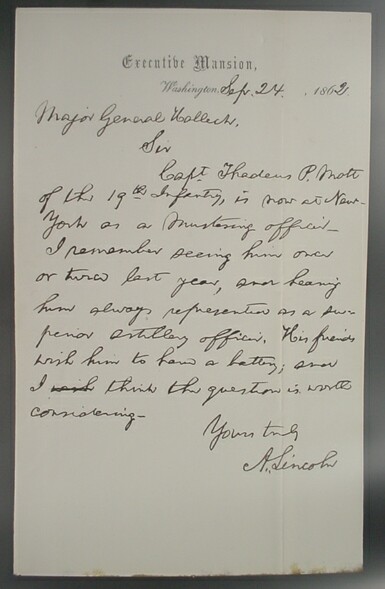 Executive Mansion,
Washington, Sep. 24. , 1862
Major General Halleck,
Sir
Capt. Thadeus P. Mott
of the 19th Infantry, is now at New-
York as a mustering officer—
I remember seeing him once
or twice last year, and hearing
him always represented as a su-
perior artillery officer. His friends
wish him to have a battery; and
I wish think the question is worth
considering—
Yours truly
A. Lincoln